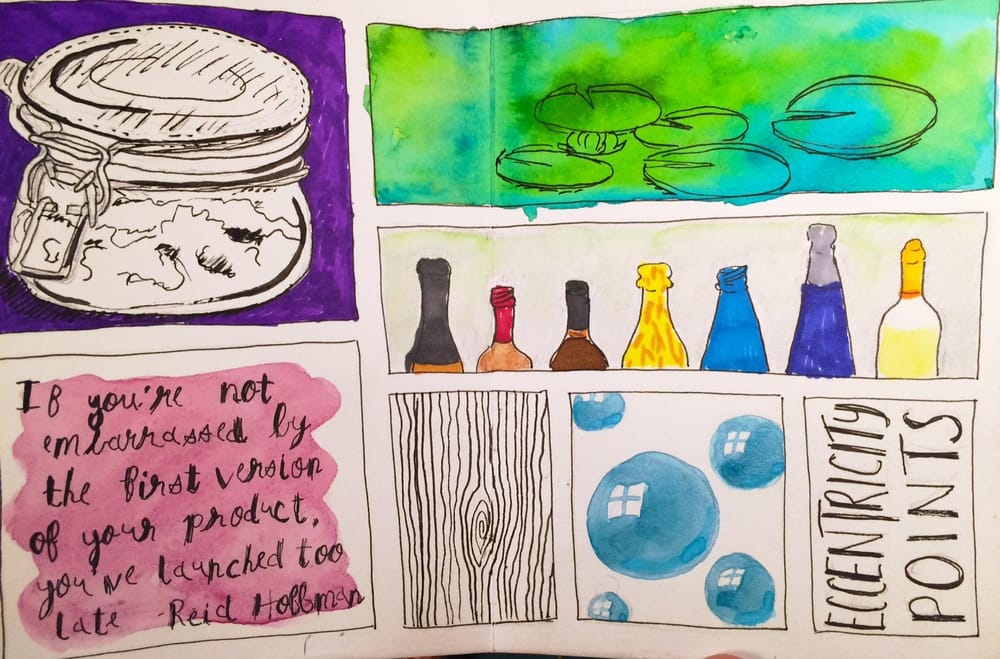 If you're not
embarrassed by
the first version
of your product,
you've launched too
late - Reid Hoffman
ECCENTRICITY
POINTS